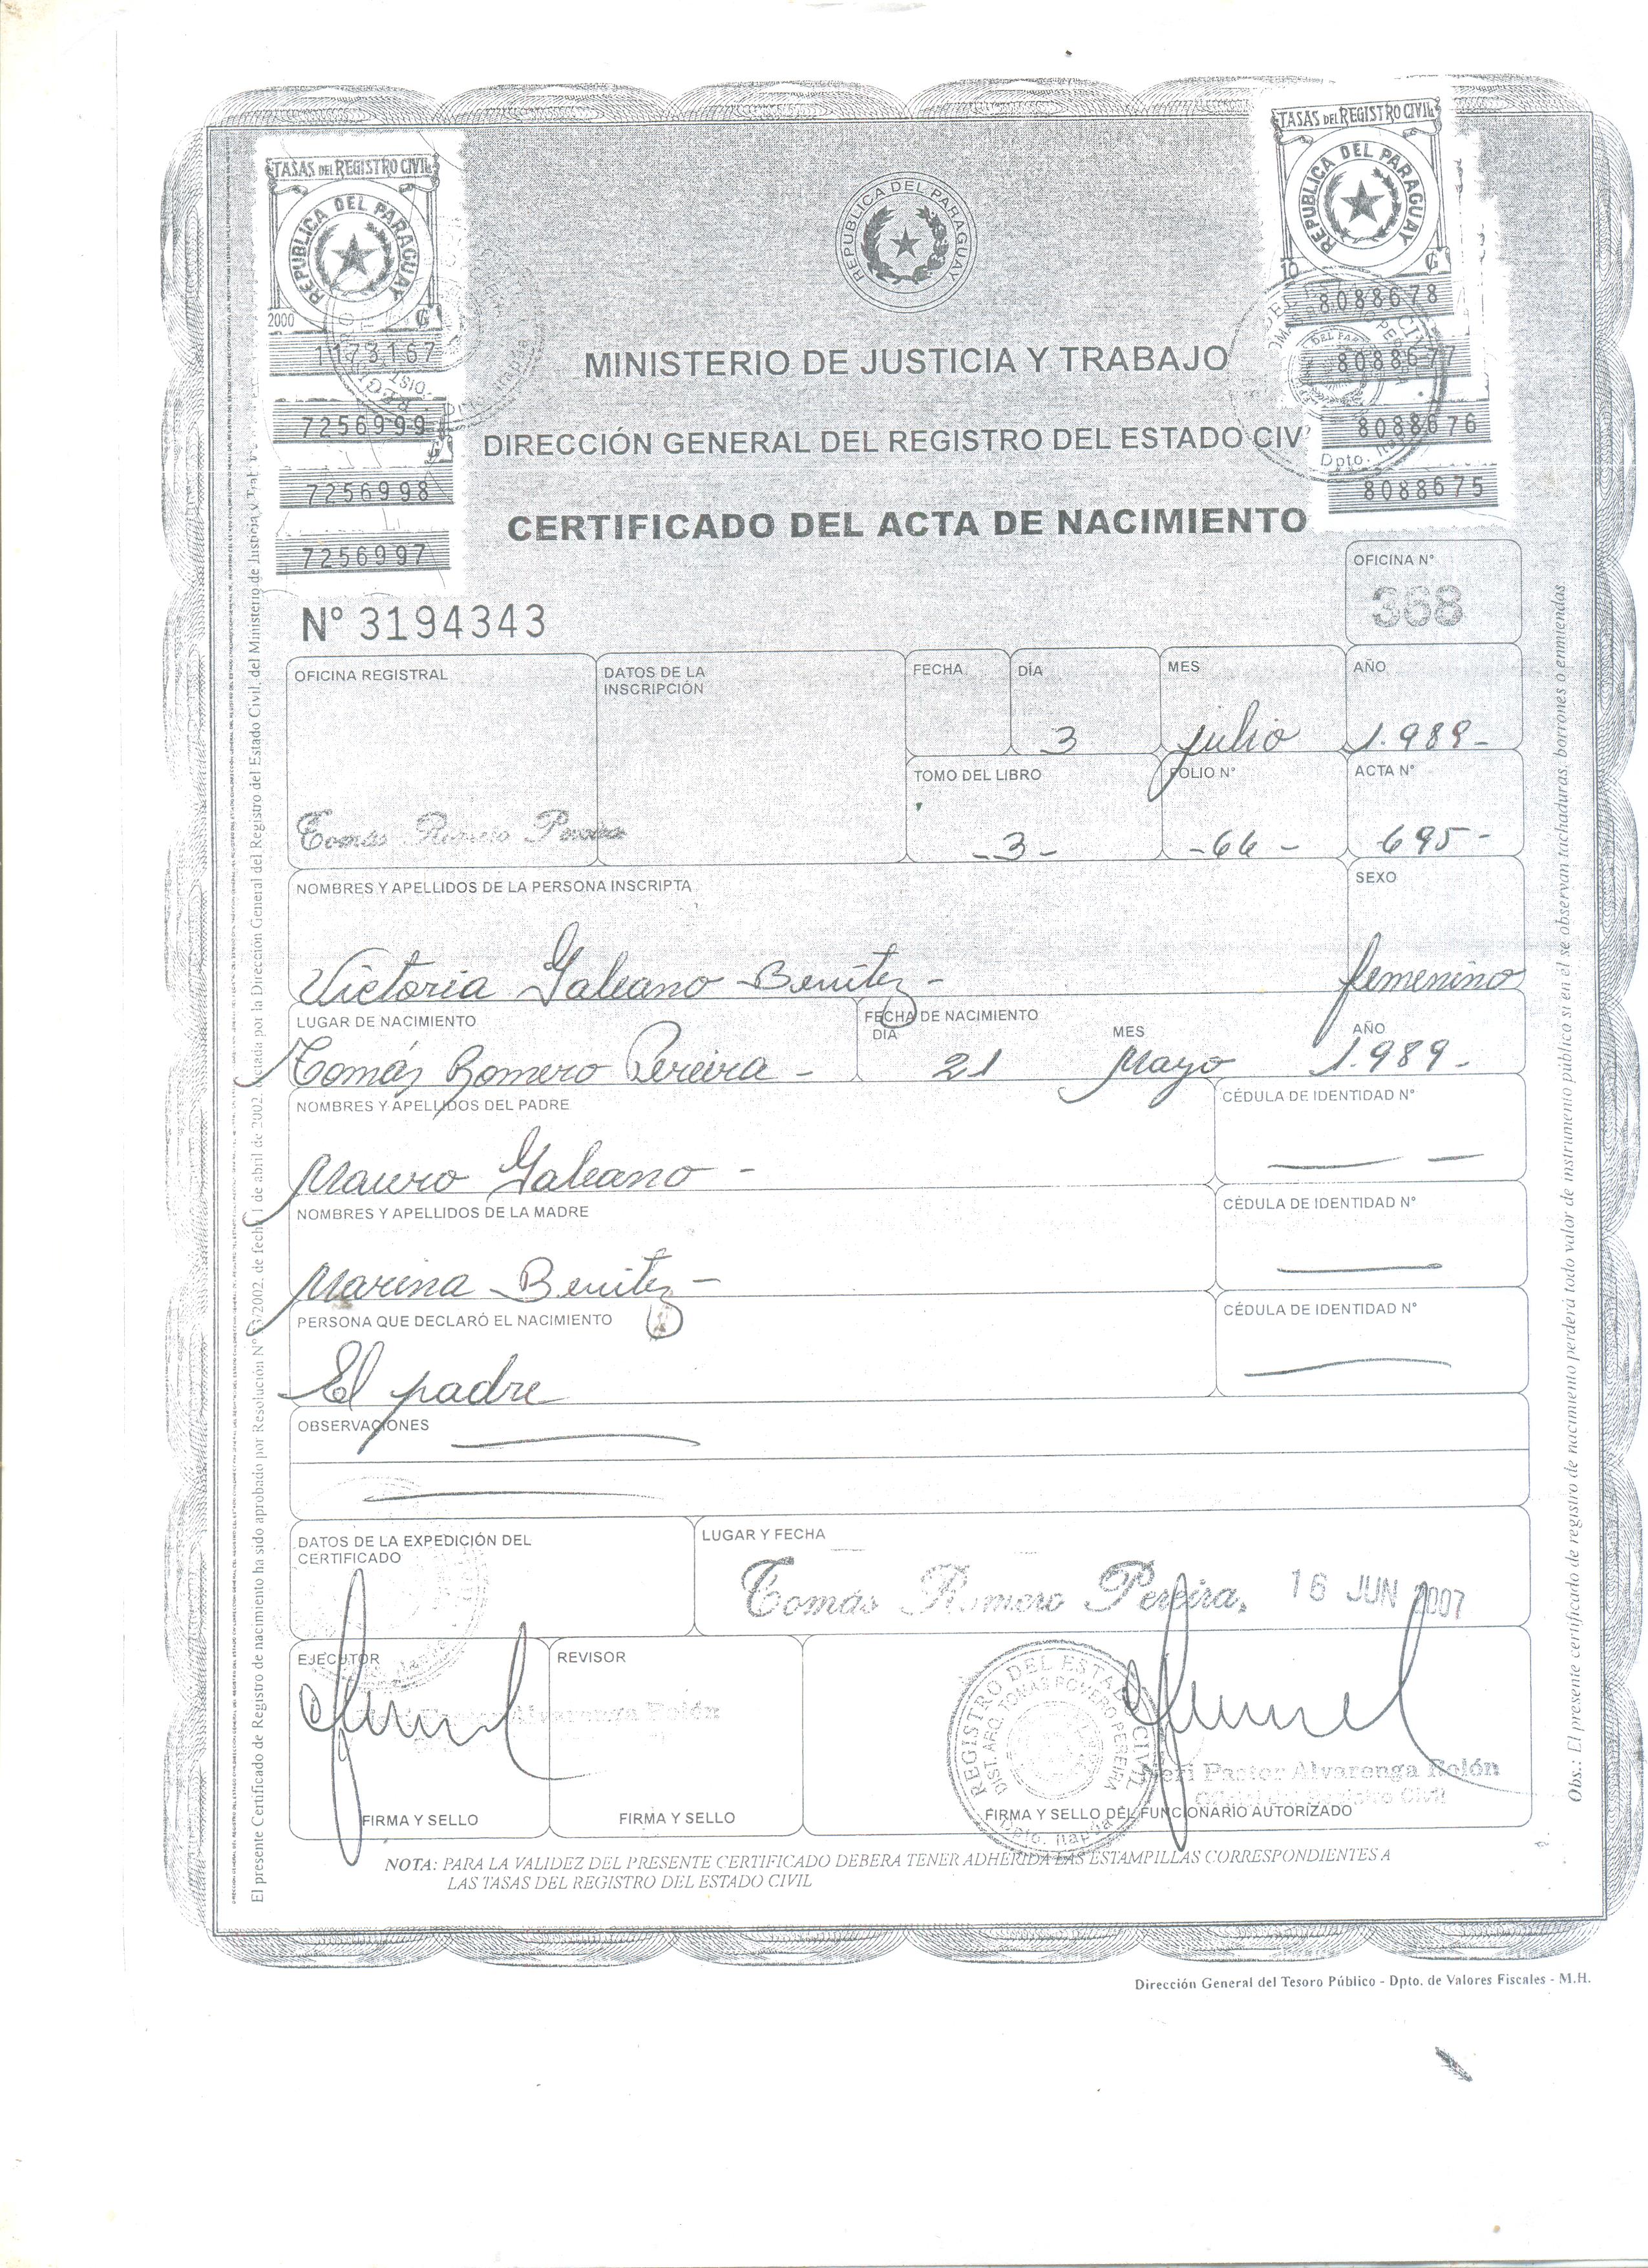 TASAS DEL REGISTRO CIVIL
REPUBLICA DEL PARAGUAY
2000 G
1173167
7256999
7256998
7256997
REPUBLICA DEL PARAGUAY
TASAS DEL REGISTRO CIVIL
REPUBLICA DEL PARAGUAY
10 G
8088678
8088677
8088676
Dpto.
8088675
MINISTERIO DE JUSTICIA Y TRABAJO
DIRECCIÓN GENERAL DEL REGISTRO DEL ESTADO CIV
CERTIFICADO DEL ACTA DE NACIMIENTO
OFICINA N°
368
N° 3194343
OFICINA REGISTRAL
Tomás Romero Pereira
DATOS DE LA
INSCRIPCIÓN
FECHA DÍA MES AÑO
3 julio 1.989-
TOMO DEL LIBRO FOLIO N° ACTA N°
-3- -66- 695-
NOMBRES Y APELLIDOS DE LA PERSONA INSCRIPTA SEXO
Victoria Galeano Benítez- femenino
LUGAR DE NACIMIENTO FECHA DE NACIMIENTO
DÍA MES AÑO
Tomás Romero Pereira - 21 Mayo 1.989-
NOMBRES Y APELLIDOS DEL PADRE CÉDULA DE IDENTIDAD N°
Mauro Galeano -
NOMBRES Y APELLIDOS DE LA MADRE CÉDULA DE IDENTIDAD N°
Marina Benítez -
PERSONA QUE DECLARÓ EL NACIMIENTO CÉDULA DE IDENTIDAD N°
El padre
OBSERVACIONES
DATOS DE LA EXPEDICIÓN DEL
CERTIFICADO
LUGAR Y FECHA
Tomás Romero Pereira, 16 JUN 2007
EJECUTOR REVISOR
Alvarenga Rolón
REGISTRO DEL ESTADO CIVIL
DIST. ARQ. TOMAS ROMERO PEREIRA
Dpto. Itapúa
Neri Pastor Alvarenga Rolón
Oficial del Registro Civil
FIRMA Y SELLO FIRMA Y SELLO FIRMA Y SELLO DEL FUNCIONARIO AUTORIZADO
NOTA: PARA LA VALIDEZ DEL PRESENTE CERTIFICADO DEBERA TENER ADHERIDA LAS ESTAMPILLAS CORRESPONDIENTES A
LAS TASAS DEL REGISTRO DEL ESTADO CIVIL
Dirección General del Tesoro Público - Dpto. de Valores Fiscales - M.H.
El presente Certificado de Registro de nacimiento ha sido aprobado por Resolución N° 53/2002, de fecha 1 de abril de 2002, dictada por la Dirección General del Registro del Estado Civil, del Ministerio de Justicia y Trab
Obs.: El presente certificado de registro de nacimiento perderá todo valor de instrumento público si en él se observan tachaduras, borrones o enmiendas